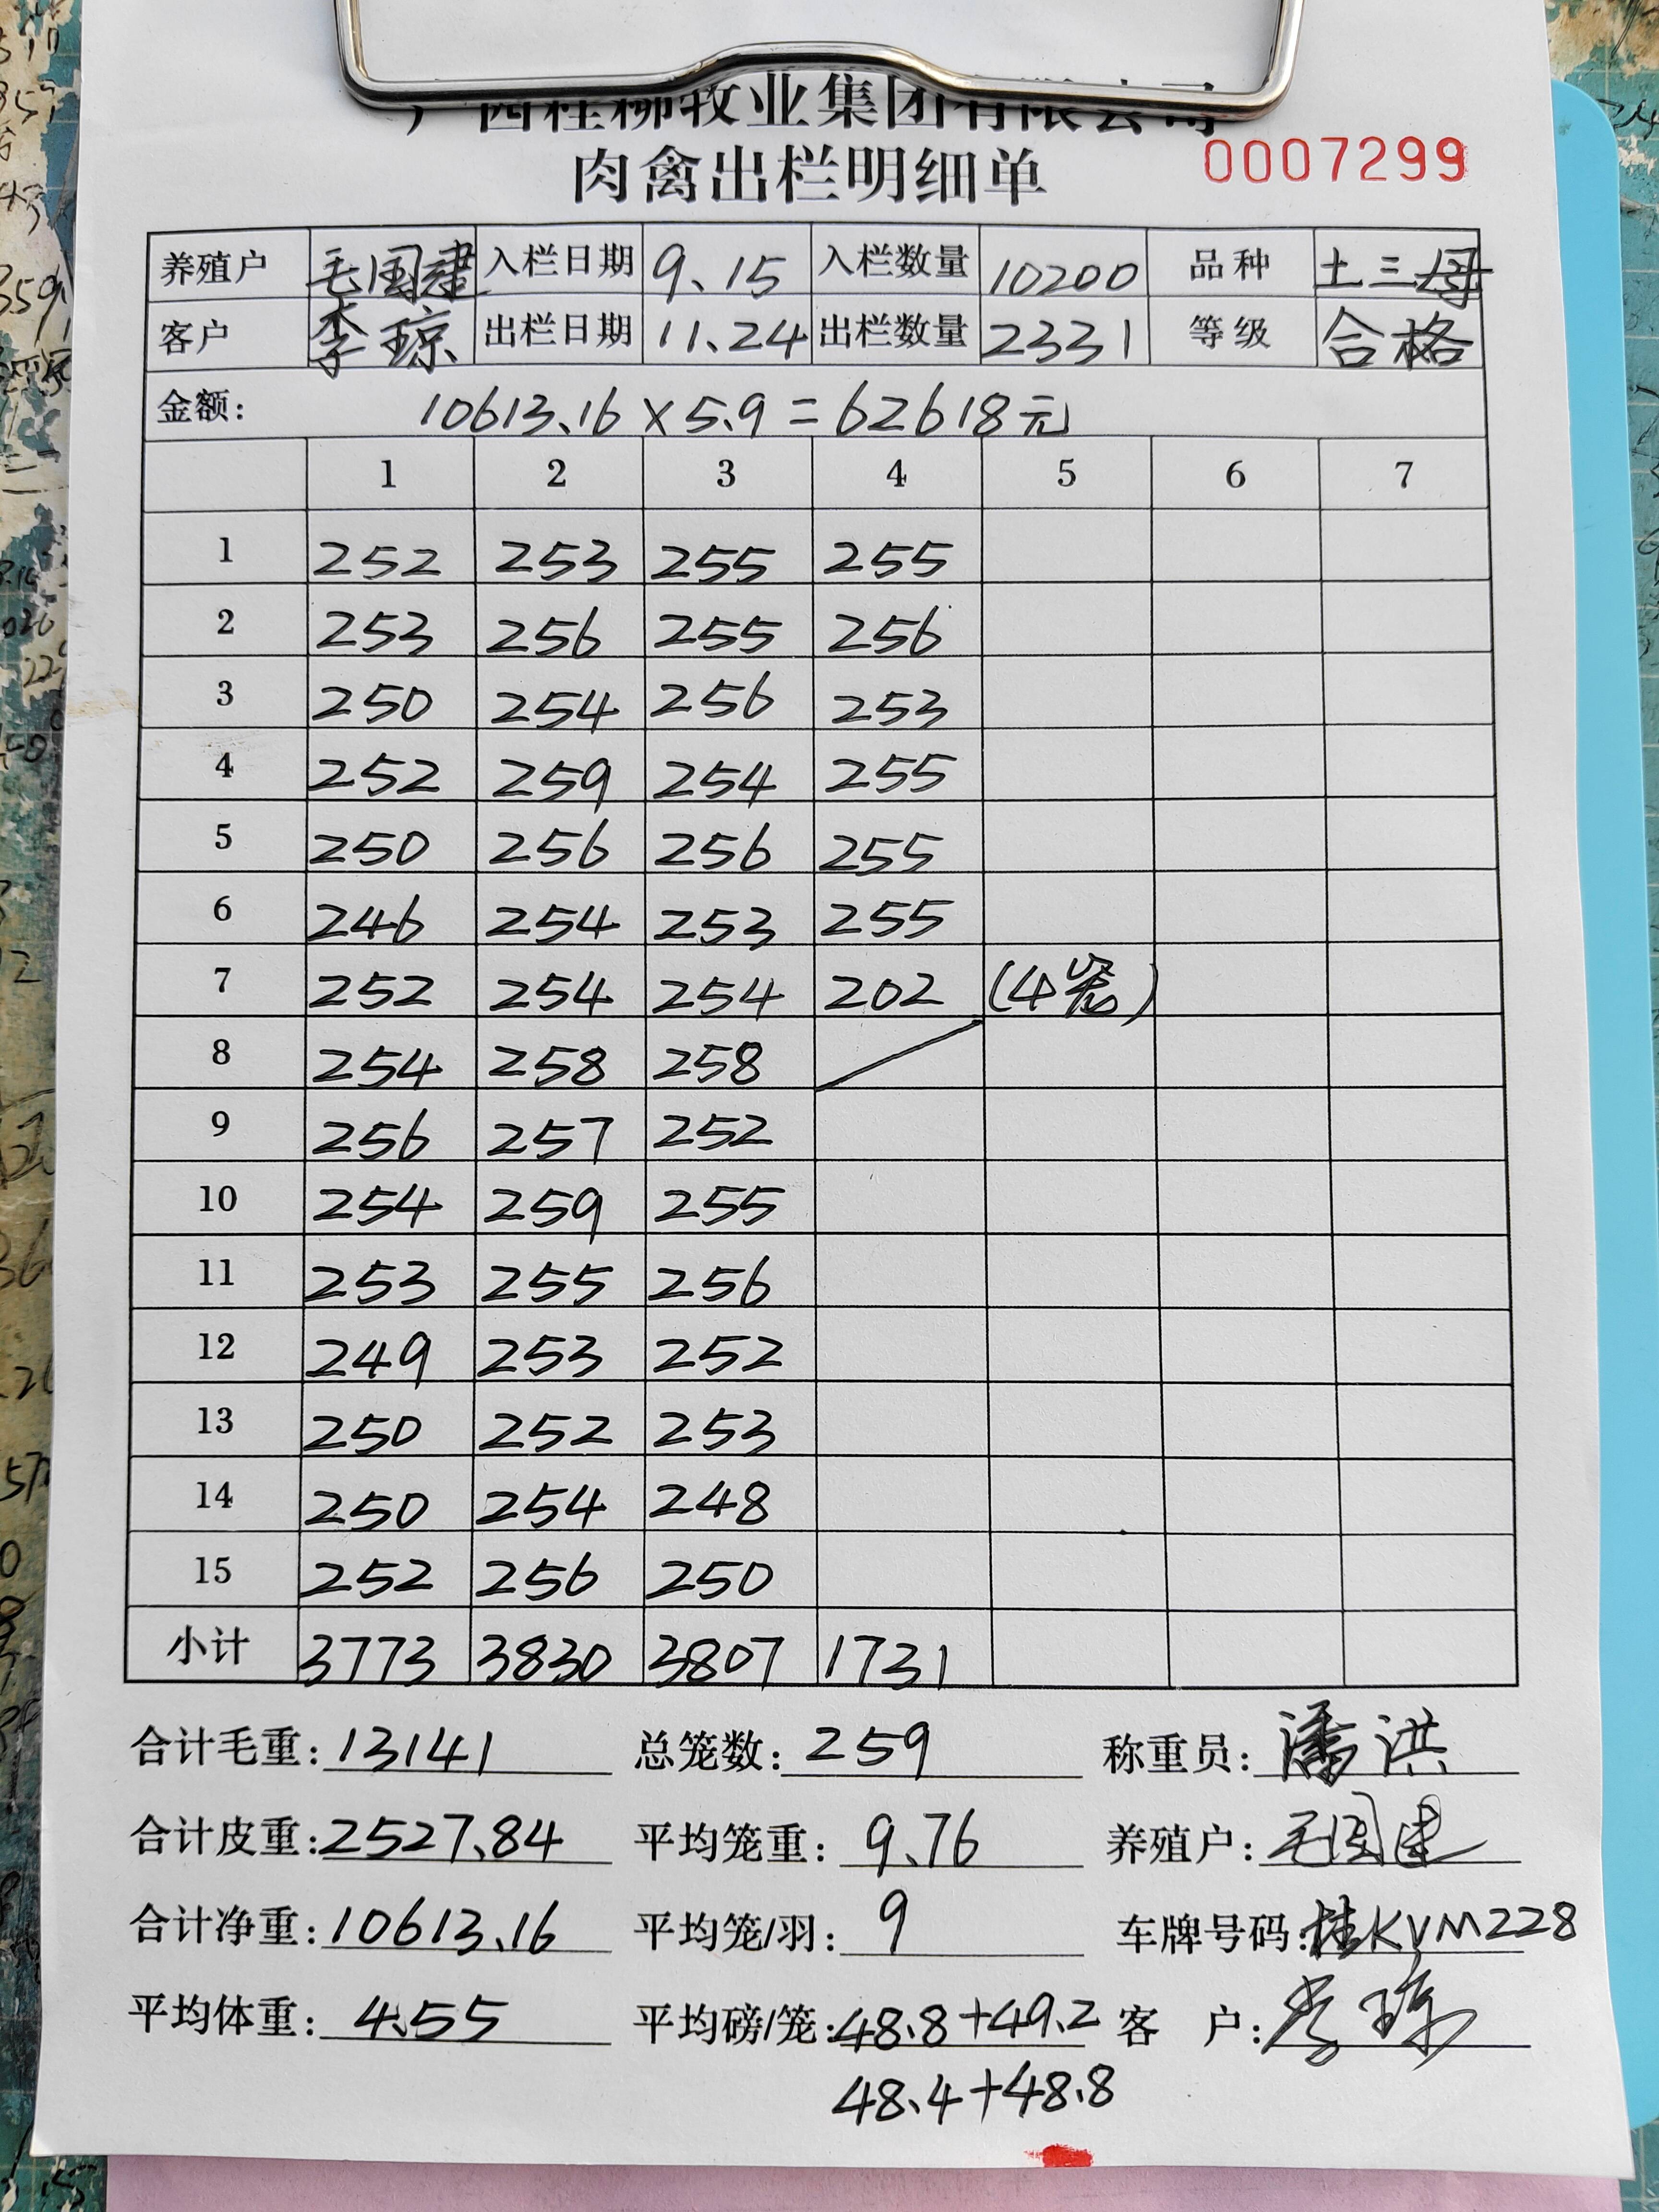 广西桂柳牧业集团有限公司
肉禽出栏明细单
0007299
养殖户 毛国建 入栏日期 9.15 入栏数量 10200 品种 土三母
客户 李琼 出栏日期 11.24 出栏数量 2331 等级 合格
金额: 10613.16×5.9=62618元
1 2 3 4 5 6 7
1 252 253 255 255
2 253 256 255 256
3 250 254 256 253
4 252 259 254 255
5 250 256 256 255
6 246 254 253 255
7 252 254 254 202 (4笼)
8 254 258 258
9 256 257 252
10 254 259 255
11 253 255 256
12 249 253 252
13 250 252 253
14 250 254 248
15 252 256 250
小计 3773 3830 3807 1731
合计毛重: 13141 总笼数: 259 称重员: 潘洪
合计皮重: 2527.84 平均笼重: 9.76 养殖户: 毛国建
合计净重: 10613.16 平均笼/羽: 9 车牌号码: 桂KVM228
平均体重: 4.55 平均磅/笼: 48.8+49.2 客 户: 李琼
48.4+48.8